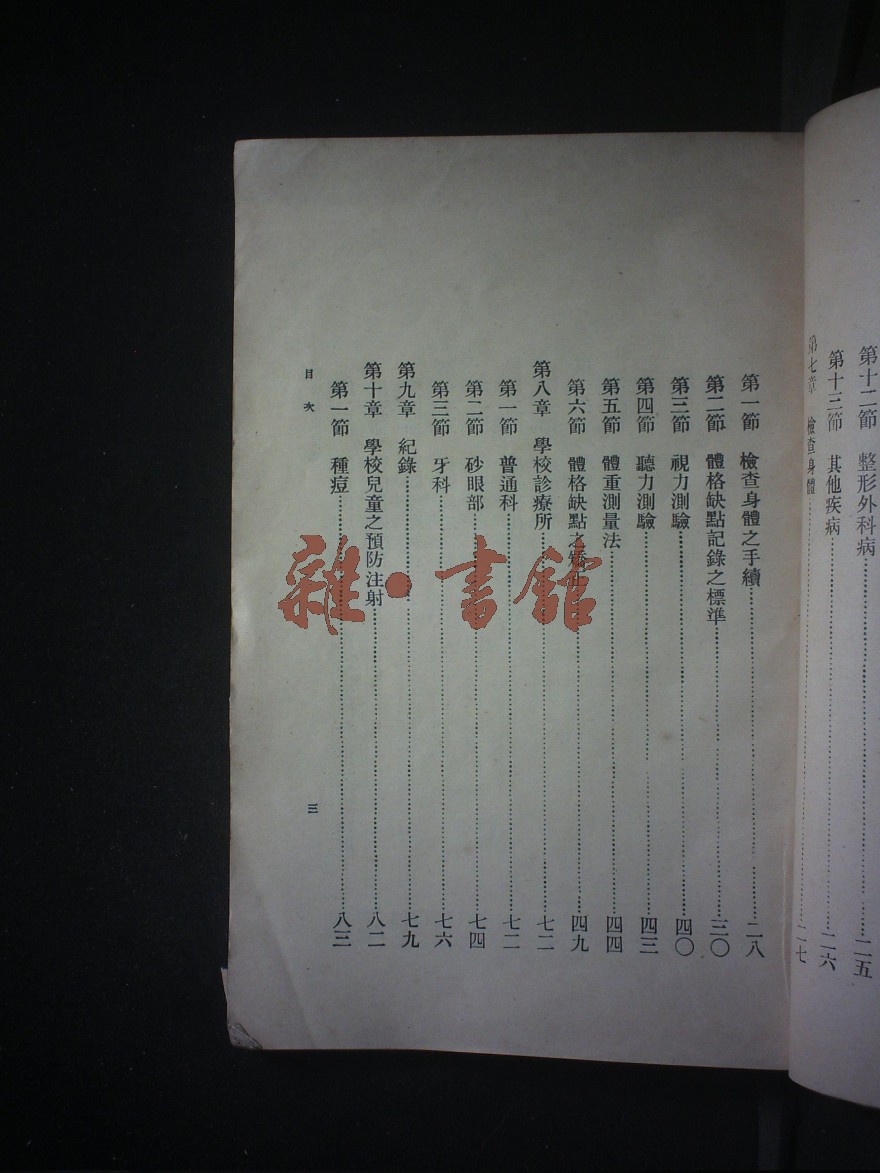 第十二節 整形外科病 二五
第十三節 其他疾病 二六
第七章 檢查身體 二七
第一節 檢查身體之手續 二八
第二節 體格缺點記錄之標準 三〇
第三節 視力測驗 四〇
第四節 聽力測驗 四三
第五節 體重測量法 四四
第六節 體格缺點之矯正 四九
第八章 學校診療所 七二
第一節 普通科 七二
第二節 砂眼部 七四
第三節 牙科 七六
第九章 紀錄 七九
第十章 學校兒童之預防注射 八二
第一節 種痘 八三
目次
三
雜·書館